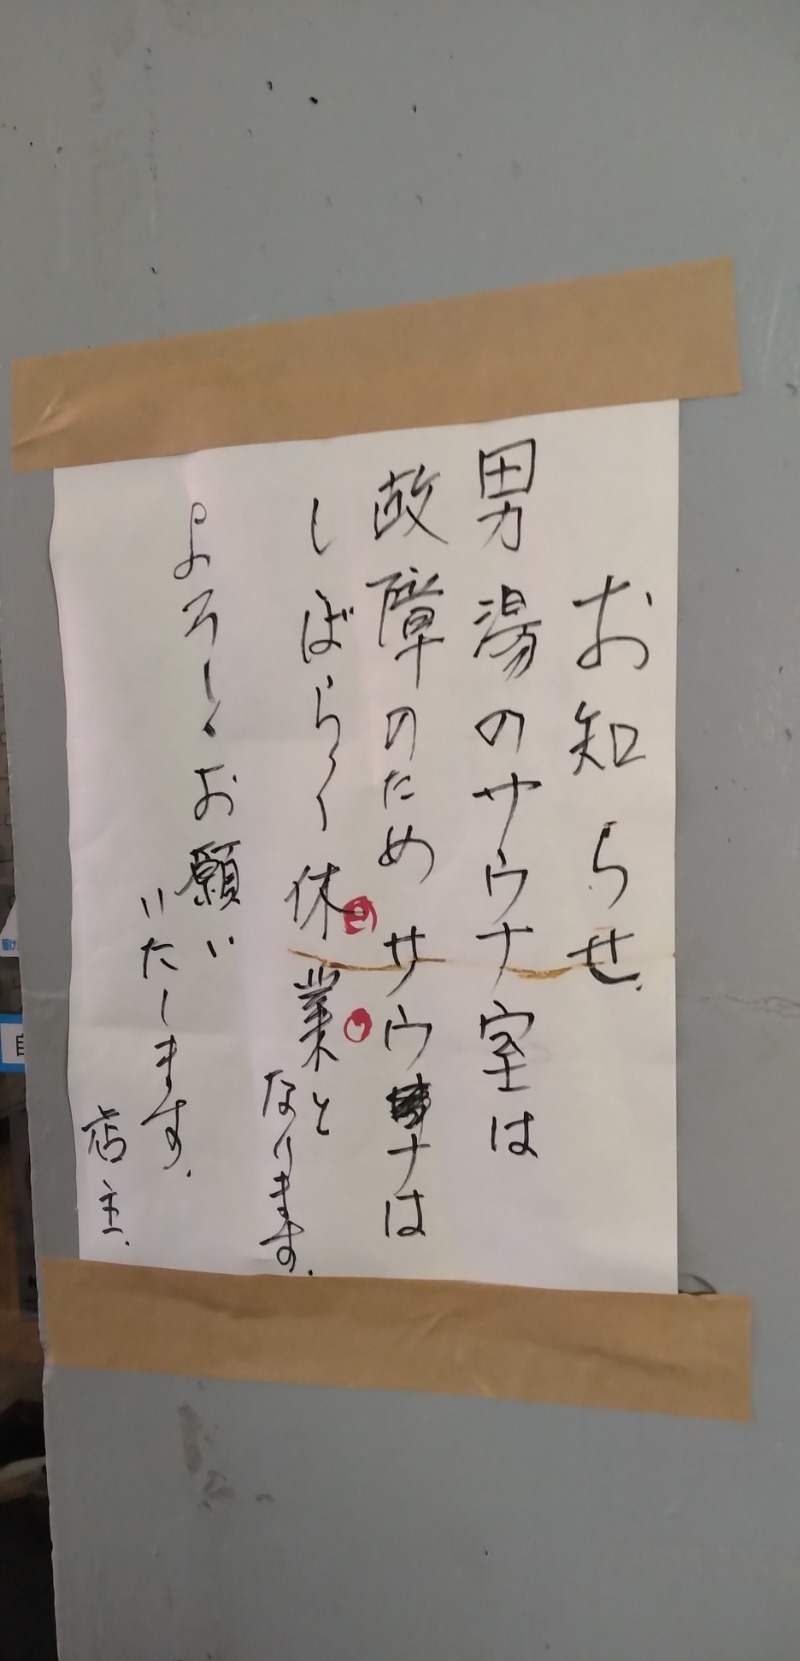 お知らせ
男湯のサウナ室は
故障のため サウナは
しばらく休業と
なります.
よろしくお願い
いたします.
店主.